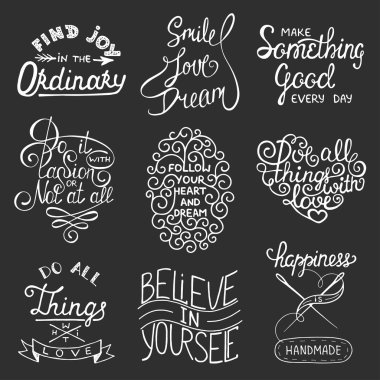 FIND JOY
IN THE
Ordinary
Smile
Love
Dream
MAKE
Something
Good
EVERY DAY
Do it
WITH
Passion
OR
Not at all
FOLLOW
YOUR
HEART
AND
DREAM
Do all
things
with
love
DO ALL
Things
WITH
LOVE
BELIEVE
IN
YOURSELF
happiness
IS
HANDMADE